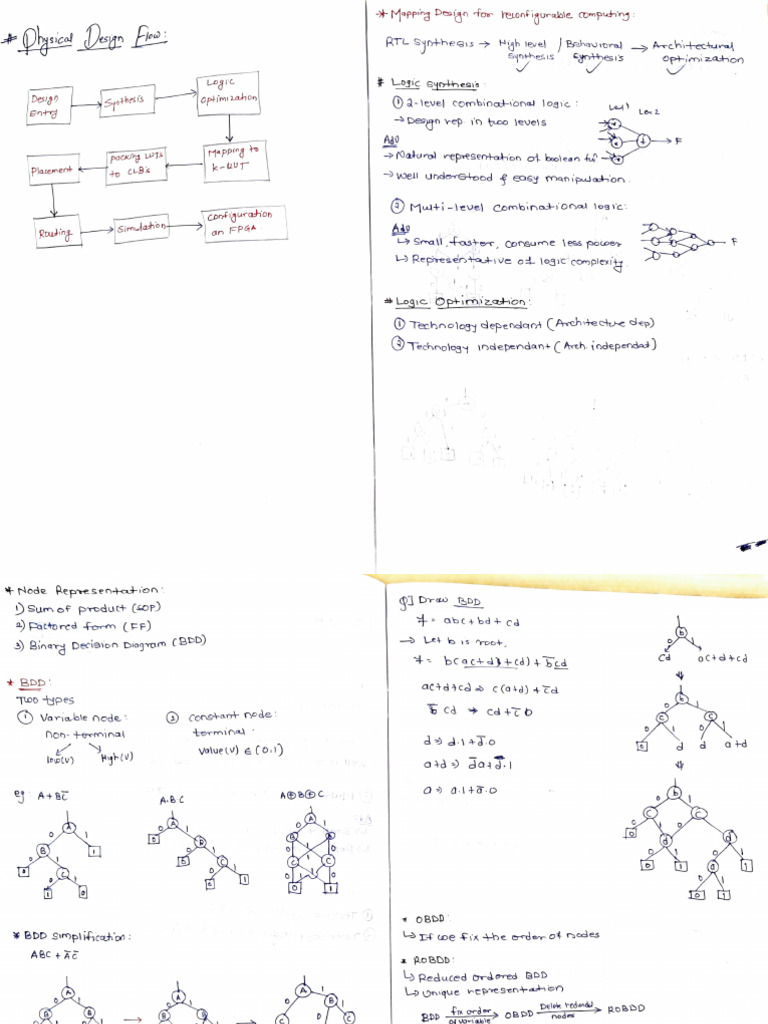 # Physical Design Flow:
Design Entry
Synthesis
Logic Optimization
Mapping to K-LUT
packing LUTs to CLB's
Placement
Routing
Simulation
Configuration an FPGA
* Mapping Design for reconfigurable computing:
RTL Synthesis → High level synthesis / Behavioral synthesis → Architectural optimization
# Logic synthesis:
① 2-level combinational logic:
→ Design rep. in two levels
Lev 1 Lev 2
F
Adv
→ Natural representation of boolean fn
→ Well understood & easy manipulation.
② Multi-level combinational logic:
Adv
↳ Small, faster, consume less power
↳ Representative of logic complexity
F
# Logic Optimization:
① Technology dependant (Architecture dep)
② Technology independant (Arch. independat)
* Node Representation:
1) Sum of product (SOP)
2) Factored form (FF)
3) Binary Decision Diagram (BDD)
* BDD:
Two types
① Variable node:
non-terminal
low(v) High(v)
② constant node:
terminal.
Value(v) ∈ (0,1)
eg: A + BC̅
A.B.C
A⊕B⊕C
* BDD simplification:
ABC + A̅C̅
Q] Draw BDD
f = abc + bd + cd
→ Let b is root.
f = b(ac+d)+cd) + b̅cd
ac+d+cd ⇒ c(a+d) + c̅d
b̅ cd → cd + c̅ 0
d ⇒ d.1 + d̅.0
a+d ⇒ d̅a + d.1
a ⇒ a.1 + a̅.0
b
cd ac+d+cd
b
c c
0 d d a+d
b
c c
0 d d
0 1 a 1
0 1
* OBDD:
↳ If we fix the order of nodes
* ROBDD:
↳ Reduced ordered BDD
↳ Unique representation
BDD fix order of variable → OBDD Delete redundant nodes → ROBDD